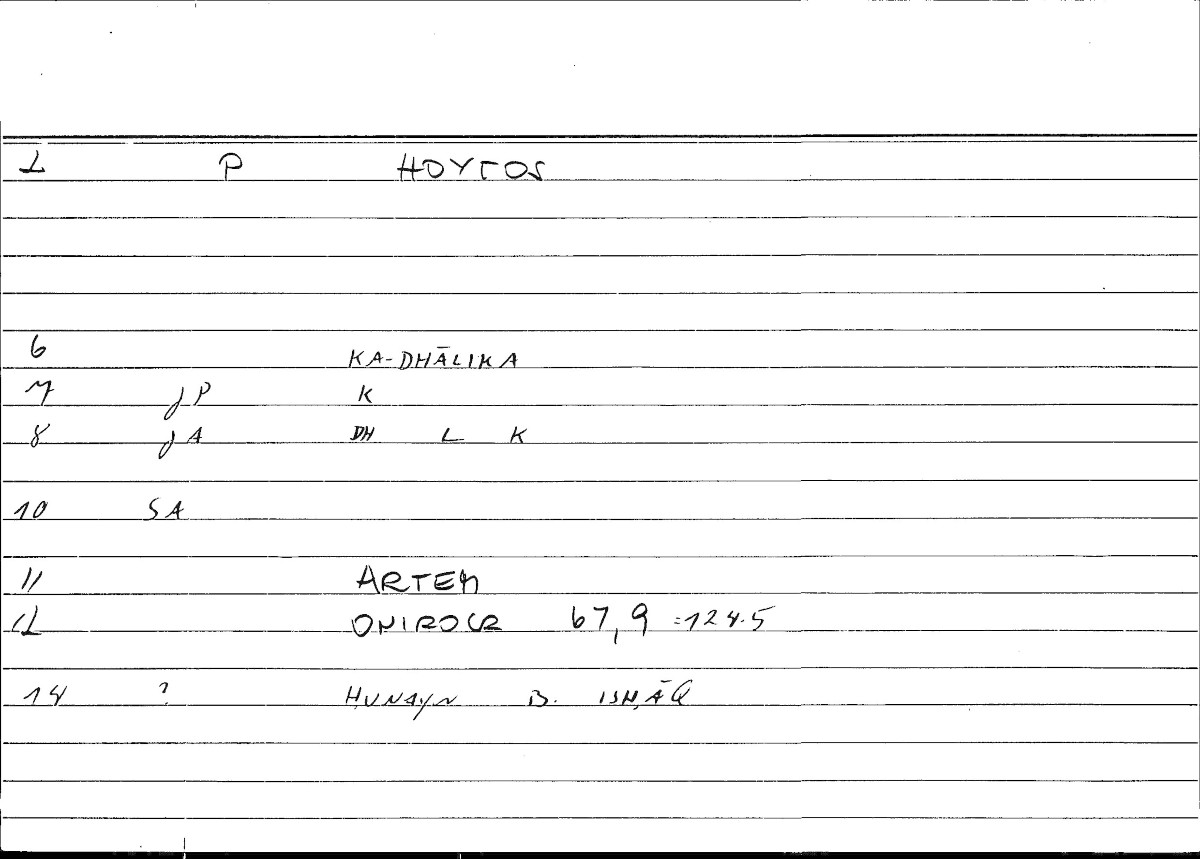 1 P HOYTOS
6 KA-DHĀLIKA
7 jP K
8 jA DH L K
10 SA
11 ARTEM
12 ONIROCR 67,9 =124.5
14 ? ḤUNAYN B. ISḤĀQ